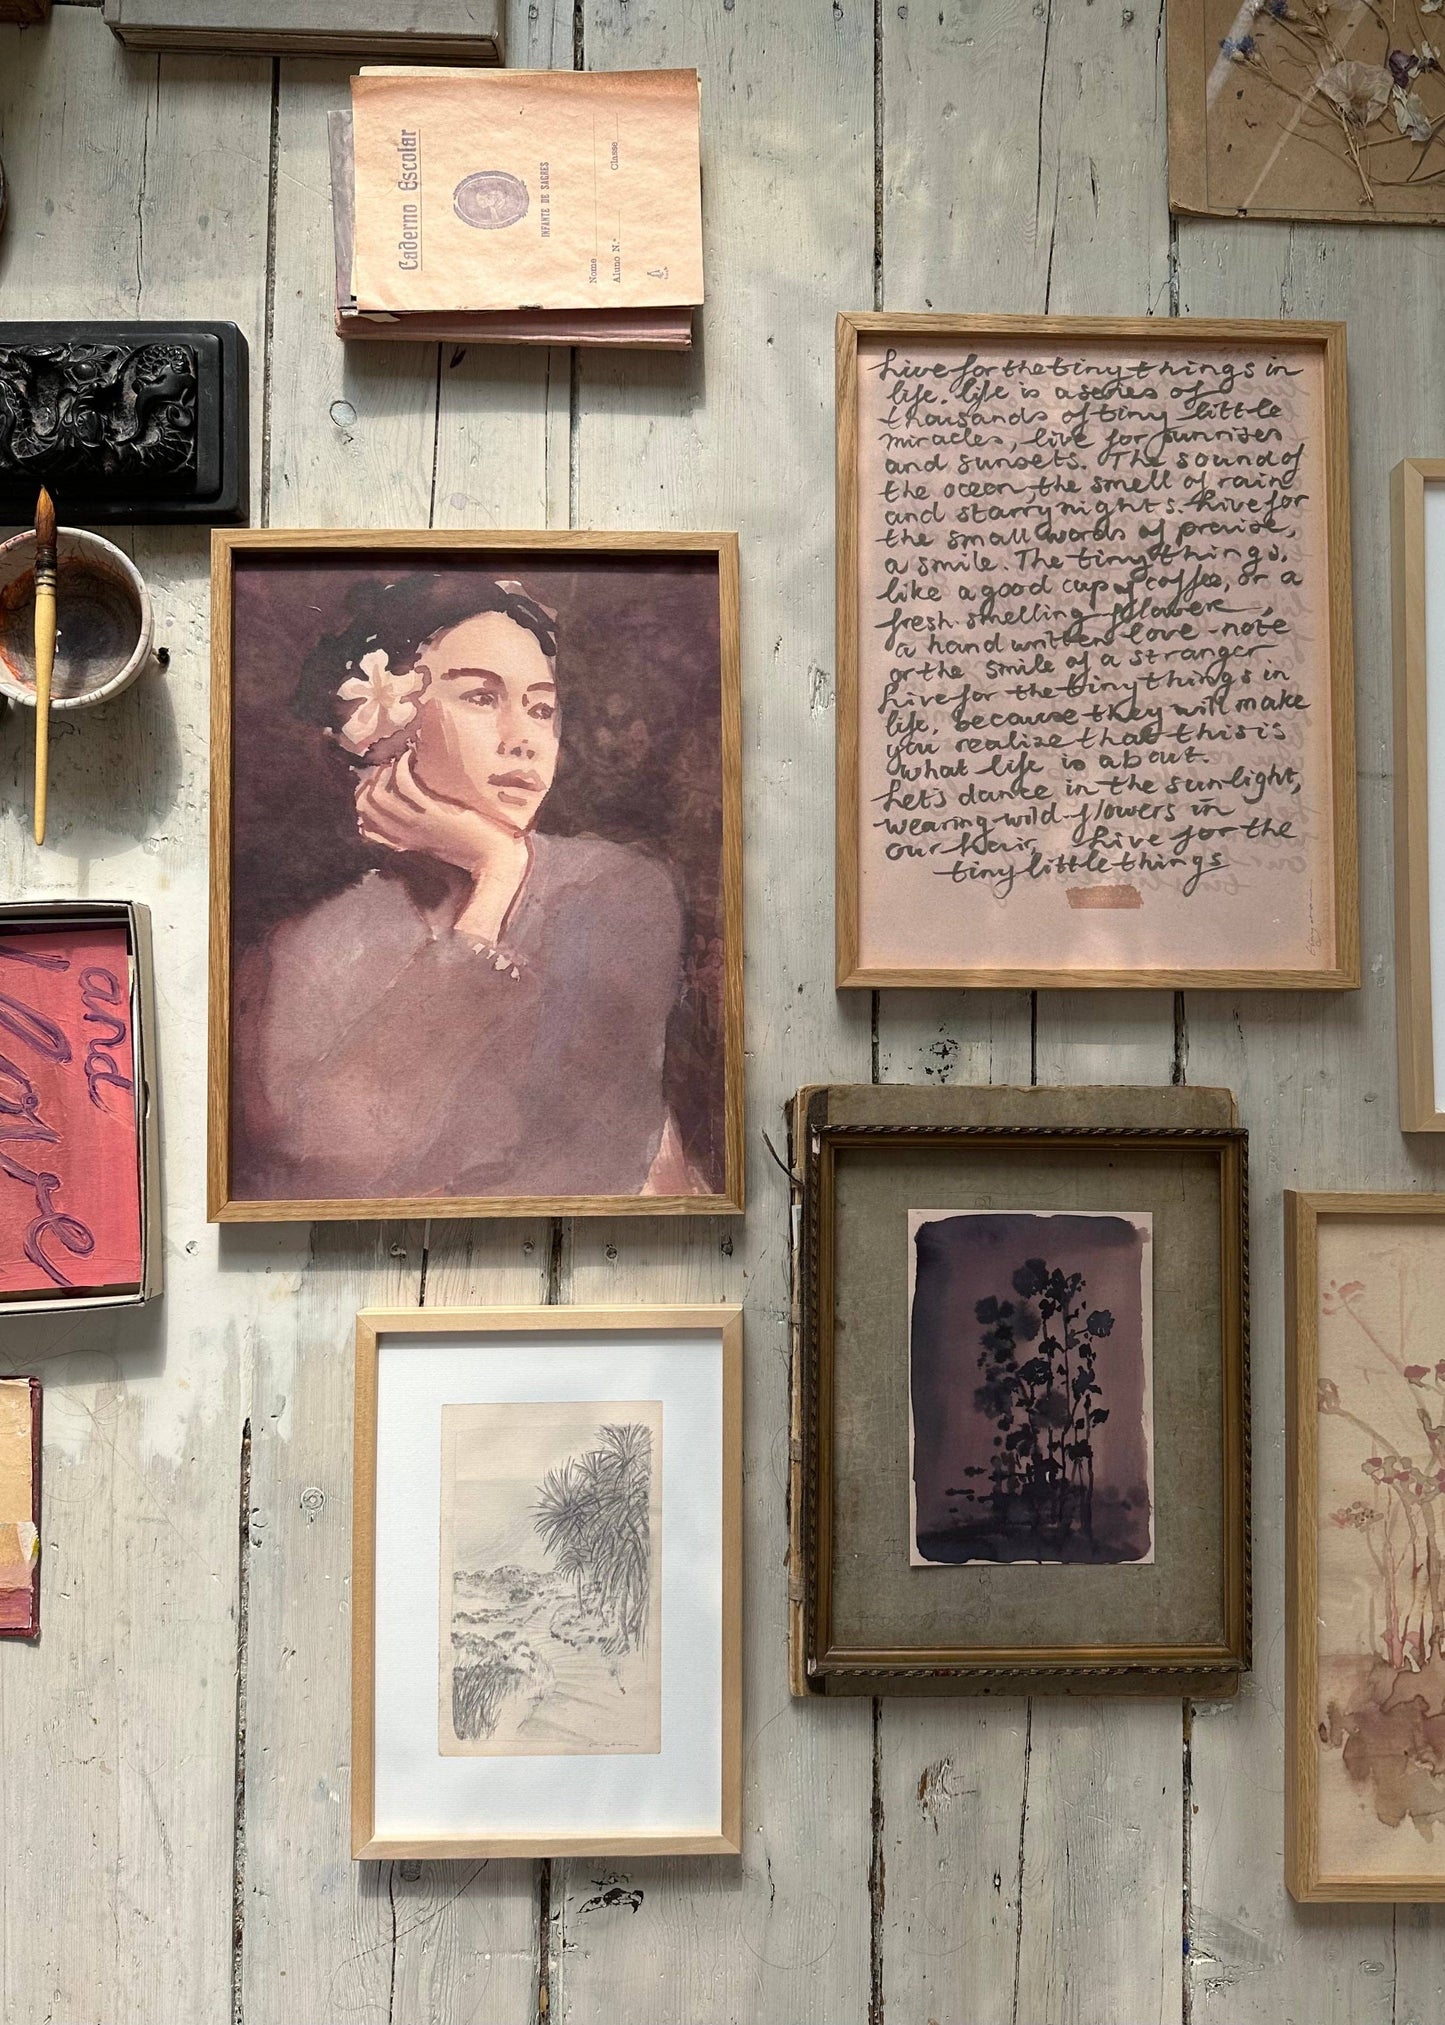 Caderno Escolar
INFANTE DE SAGRES
Nome
Aluno N.º Classe
Live for the tiny things in
life. life is a series of
thousands of tiny little
miracles, live for sunrises
and sunsets. The sound of
the ocean, the smell of rain
and starry nights. Live for
the small words of praise,
a smile. The tiny things,
like a good cup of coffee, or a
fresh smelling flower,
a hand written love-note
or the smile of a stranger
Live for the tiny things in
life, because they will make
you realize that this is
what life is about.
Let's dance in the sunlight,
wearing wild-flowers in
our hair. Live for the
tiny little things
and
love